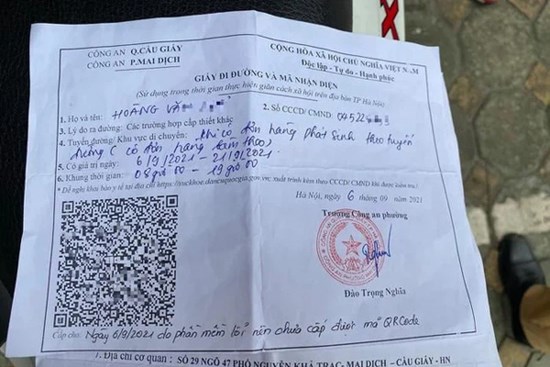 CÔNG AN Q.CẦU GIẤY
CÔNG AN P.MAI DỊCH
CỘNG HÒA XÃ HỘI CHỦ NGHĨA VIỆT NAM
Độc lập - Tự do - Hạnh phúc
GIẤY ĐI ĐƯỜNG VÀ MÃ NHẬN DIỆN
(Sử dụng trong thời gian thực hiện giãn cách xã hội trên địa bàn TP Hà Nội)
1. Họ và tên: HOÀNG VĂN
2. Số CCCD/ CMND: 04522
3. Lý do ra đường: Các trường hợp cấp thiết khác
4. Tuyến đường/ Khu vực di chuyển: Khi có đơn hàng phát sinh theo tuyến
đường (có đơn hàng kèm theo)
5. Có giá trị ngày: 6/9/2021 - 21/9/2021.
6. Khung thời gian: 08 giờ 00 - 19 giờ 00
* Đề nghị khai báo y tế tại địa chỉ: https://suckhoe.dancuquocgia.gov.vn; xuất trình kèm theo CCCD/ CMND khi được kiểm tra./.
Hà Nội, ngày 6 tháng 09 năm 2021
Trưởng Công an phường
Đào Trọng Nghĩa
Cấp cho: Ngày 6/9/2021 do phần mềm lỗi nên chưa cấp được mã QRCode
7. Địa chỉ cơ quan: SỐ 29 NGÕ 47 PHỐ NGUYỄN KHẢ TRẠC- MAI DỊCH – CẦU GIẤY - HN